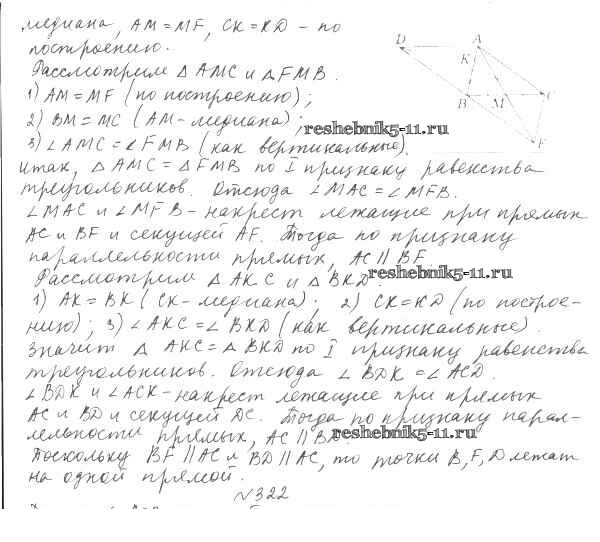 медиана, AM = MF, CK = KD – по
построению.
Рассмотрим △ AMC и △ FMB.
1) AM = MF (по построению);
2) BM = MC (AM – медиана);
reshebnik5-11.ru
3) ∠AMC = ∠FMB (как вертикальные).
Итак, △ AMC = △ FMB по I признаку равенства
треугольников. Отсюда ∠MAC = ∠MFB.
∠MAC и ∠MFB – накрест лежащие при прямых
AC и BF и секущей AF. Тогда по признаку
параллельности прямых, AC ∥ BF.
reshebnik5-11.ru
Рассмотрим △ AKC и △ BKD.
1) AK = BK (CK – медиана); 2) CK = KD (по построе-
нию); 3) ∠AKC = ∠BKD (как вертикальные).
Значит △ AKC = △ BKD по I признаку равенства
треугольников. Отсюда ∠BDK = ∠ACD.
∠BDK и ∠ACK – накрест лежащие при прямых
AC и BD и секущей DC. Тогда по признаку парал-
лельности прямых, AC ∥ BD.
reshebnik5-11.ru
Поскольку BF ∥ AC и BD ∥ AC, то точки B, F, D лежат
на одной прямой.
N322
D
A
K
B
M
C
F